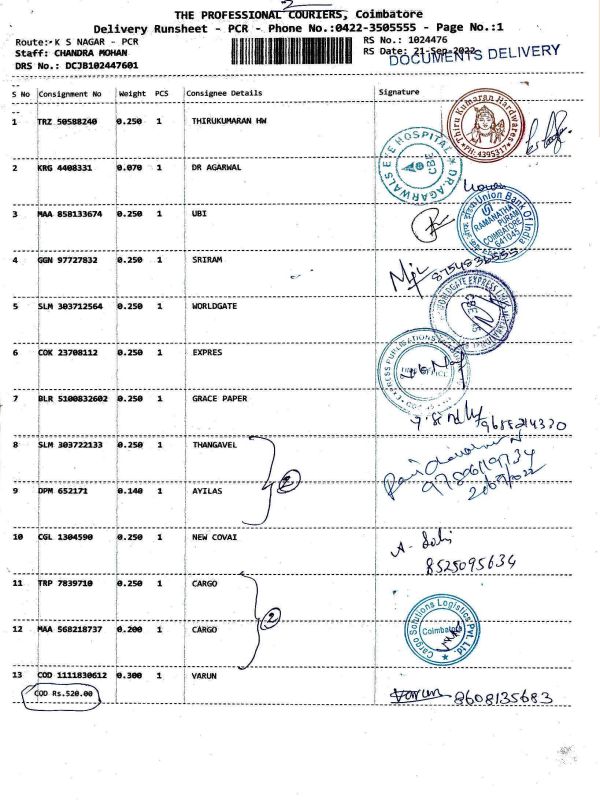 2
THE PROFESSIONAL COURIERS, Coimbatore
Delivery Runsheet - PCR - Phone No.:0422-3505555 - Page No.:1
Route:- K S NAGAR - PCR RS No.: 1024476
Staff: CHANDRA MOHAN RS Date: 21-Sep-2022
DOCUMENTS DELIVERY
DRS No.: DCJB102447601
S No Consignment No Weight PCS Consignee Details Signature
1 TRZ 50588240 0.250 1 THIRUKUMARAN HW
Thiru Kumaran Hardwares * PH: 4395317 *
2 KRG 4408331 0.070 1 DR AGARWAL
DR.AGARWALS EYE HOSPITAL * CBE
3 MAA 858133674 0.250 1 UBI
Union Bank Of India
RAMANATHA
PURAM
COIMBATORE
641045
4 GGN 97727832 0.250 1 SRIRAM
8754836555
5 SLM 303712564 0.250 1 WORLDGATE
WORLDGATE EXPRESS
CBE
6 COK 23708112 0.250 1 EXPRES
EXPRESS PUBLICATIONS
7 BLR 5100832602 0.250 1 GRACE PAPER
9688214320
8 SLM 303722133 0.250 1 THANGAVEL
2
9789619734
20/09/2022
9 DPM 652171 0.140 1 AYILAS
10 CGL 1304590 0.250 1 NEW COVAI
8525095634
11 TRP 7839710 0.250 1 CARGO
2
Cargo Solutions Logistics Pvt. Ltd.
Coimbatore
12 MAA 568218737 0.200 1 CARGO
13 COD 1111830612 0.300 1 VARUN
COD Rs.520.00
Varun 8608135683